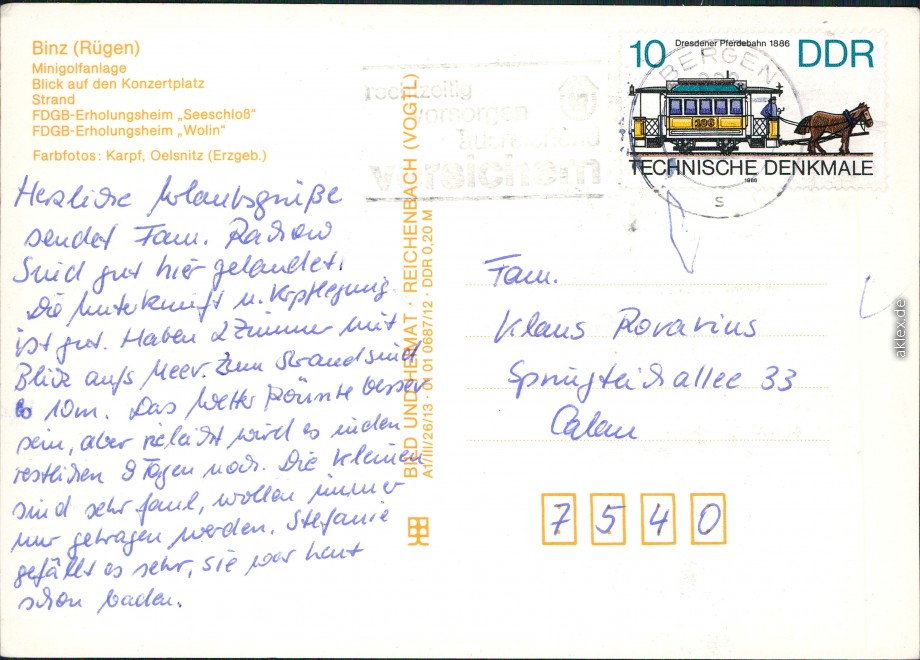 Binz (Rügen)
Minigolfanlage
Blick auf den Konzertplatz
Strand
FDGB-Erholungsheim „Seeschloß“
FDGB-Erholungsheim „Wolin“
Farbfotos: Karpf, Oelsnitz (Erzgeb.)
Herzliche Urlaubsgrüße
sendet Fam. Radow
Sind gut hier gelandet.
Die Unterkunft u. Verpflegung
ist gut. Haben 2 Zimmer mit
Blick aufs Meer. Zum Strand sind
es 10m. Das Wetter könnte besser
sein, aber vieleicht wird es in den
restlichen 9 Tagen noch. Die Kleinen
sind sehr faul, wollen immer
nur getragen werden. Stefanie
gefällt es sehr, sie war heut
schon baden.
BILD UND HEIMAT · REICHENBACH (VOGTL)
A1/III/26/13 · 01 01 0687/12 · DDR 0,20 M
rechtzeitig
vorsorgen
ausreichend
versichern
BERGEN
s
10 Dresdener Pferdebahn 1886 DDR
106
TECHNISCHE DENKMALE
1986
Fam.
Klaus Rovarius
Springteichallee 33
Calau
7540
aklex.de